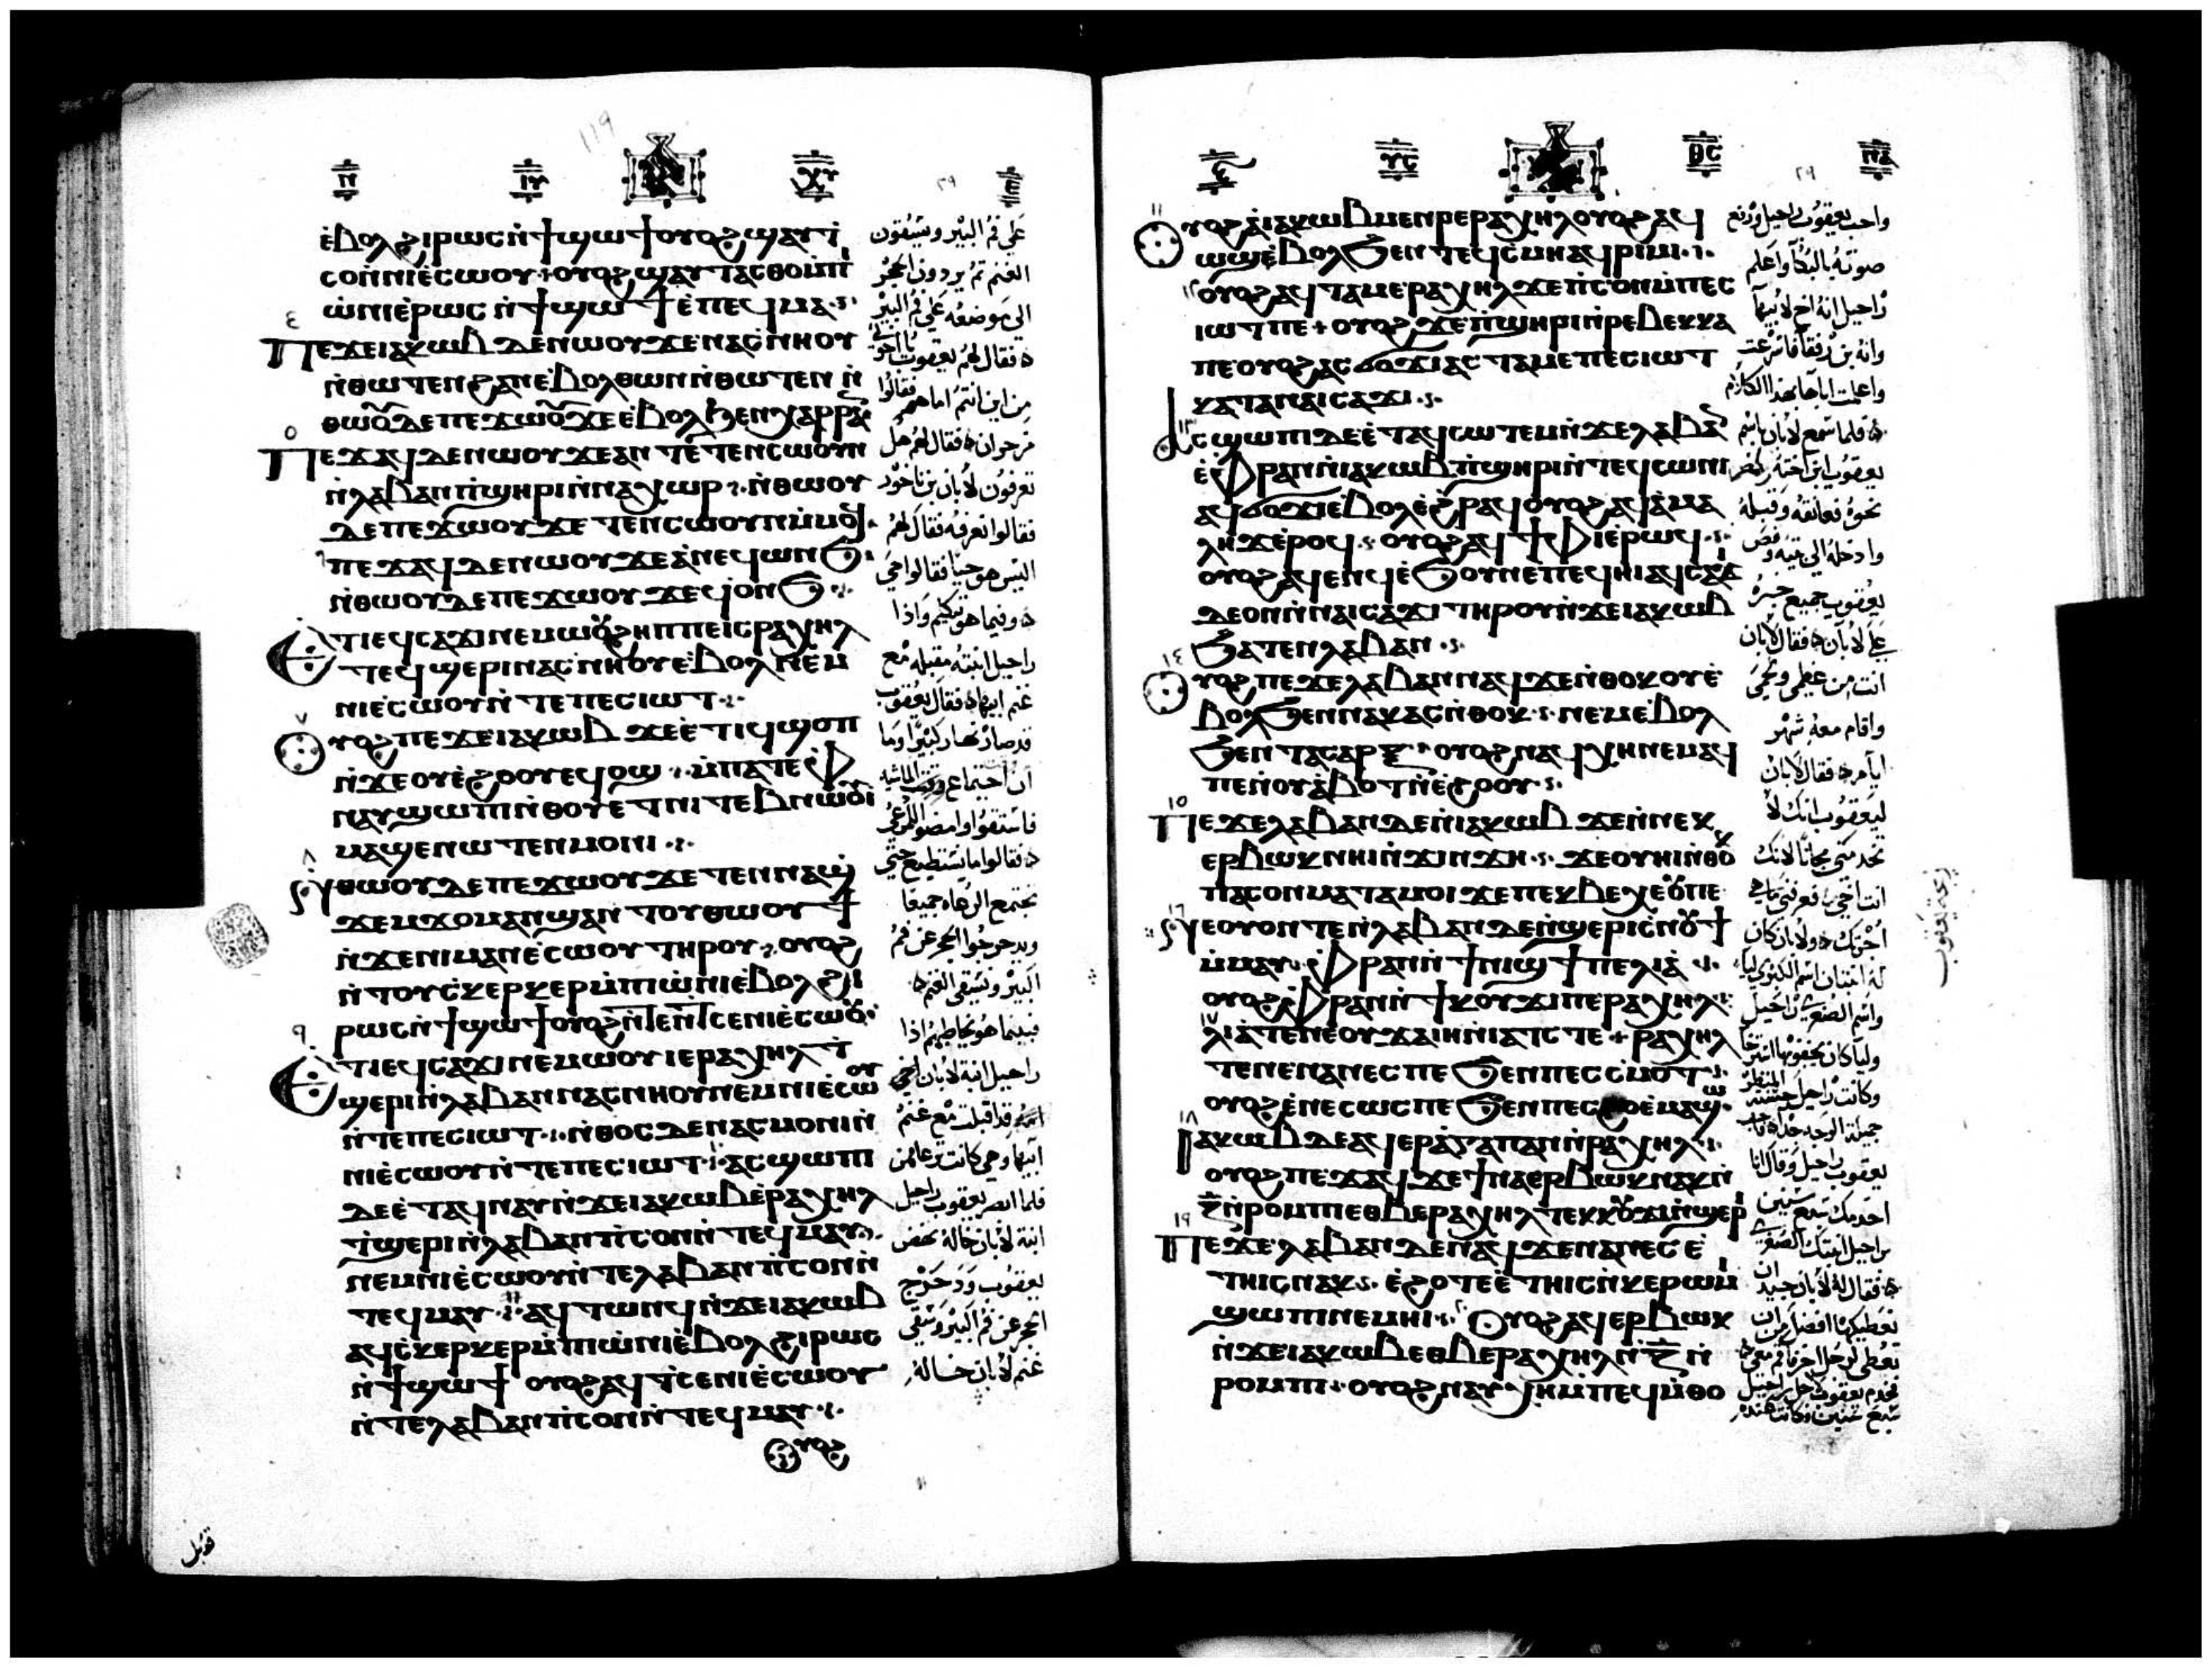 ⲉ̀ⲃⲟⲗϩⲓⲣⲱⲥⲛ̀ϯϣⲱϯⲟⲩⲟϩϣⲁⲩⲧ̀
ⲥⲟⲛ̀ⲛⲓⲉ̀ⲥⲱⲟⲩ+ⲟⲩⲟϩϣⲁⲩⲧⲁⲥⲑⲟⲙ̀ⲡⲓ
ⲱ̀ⲛⲓⲉ̀ⲣⲱⲥⲛ̀ϯϣⲱϯⲉ̀ⲡⲉϥⲙⲁ
ⲡⲉϫⲉⲓⲁⲕⲱⲃⲇⲉⲛⲱⲟⲩϫⲉⲛⲁⲥⲛⲏⲟⲩ
ⲛ̀ⲑⲱⲧⲉⲛϩⲁⲛⲉ̀ⲃⲟⲗⲑⲱⲛⲛ̀ⲑⲱⲧⲉⲛ ⲛ̀
ⲑⲱⲟⲩⲇⲉⲡⲉϫⲱⲟⲩϫⲉⲉ̀ⲃⲟⲗϧⲉⲛⲭⲁⲣⲣⲁ
ⲡⲉϫⲁϥⲇⲉⲛⲱⲟⲩϫⲉⲁⲛ ⲧⲉⲧⲉⲛⲥⲱⲟⲩⲛ
ⲛ̀ⲗⲁⲃⲁⲛⲡ̀ϣⲏⲣⲓⲛ̀ⲛⲁⲭⲱⲣ ⲛ̀ⲑⲱⲟⲩ
ⲇⲉⲡⲉϫⲱⲟⲩϫⲉ ⲧⲉⲛⲥⲱⲟⲩⲛⲙ̀ⲙⲟϥ
ⲡⲉϫⲁϥⲇⲉⲛⲱⲟⲩϫⲉⲁⲛⲉϥⲱⲛϧ
ⲛ̀ⲑⲱⲟⲩⲇⲉⲡⲉϫⲱⲟⲩϫⲉϥⲟⲛϧ
ⲉⲧⲓⲉϥⲥⲁϫⲓⲛⲉⲙⲱⲟⲩϩⲏⲡⲡⲉⲓⲥⲣⲁⲭⲏⲗ
ⲧⲉϥϣⲉⲣⲓⲛⲁⲥⲛⲏⲟⲩⲉ̀ⲃⲟⲗ ⲛⲉⲙ
ⲛⲓⲉ̀ⲥⲱⲟⲩⲛ̀ⲧⲉⲡⲉⲥⲓⲱⲧ
ⲟⲩⲟϩⲡⲉϫⲉⲓⲁⲕⲱⲃ ϫⲉⲉ̀ⲧⲓϥϣⲟⲡ
ⲛ̀ϫⲉⲟⲩⲉ̀ϩⲟⲟⲩⲉϥⲟϣ ⲙ̀ⲡⲁⲧⲉⲫ
ⲛⲁⲩϣⲱⲡⲓⲛ̀ⲑⲟⲩⲉⲧⲛⲓⲧⲉⲃⲛⲱⲟⲩⲓ
ⲙⲁϣⲉⲛⲱⲧⲉⲛⲙⲟⲛⲓ
ⲛ̀ⲑⲱⲟⲩⲇⲉⲡⲉϫⲱⲟⲩϫⲉ ⲧⲉⲛⲛⲁϣ
ϫⲉⲙϫⲟⲙⲁⲛϣⲁⲛ ⲧⲟⲩⲑⲱⲟⲩϯ
ⲛ̀ϫⲉⲛⲓⲙⲁⲛⲉ̀ⲥⲱⲟⲩ ⲧⲏⲣⲟⲩ ⲟⲩⲟϩ
ⲛ̀ⲧⲟⲩⲥⲕⲉⲣⲕⲉⲣⲙ̀ⲡⲓⲱ̀ⲛⲓⲉ̀ⲃⲟⲗϩⲓ
ⲣⲱⲥⲛ̀ϯϣⲱϯⲟⲩⲟϩⲛ̀ⲧⲉⲛⲧⲥⲉⲛⲓⲉ̀ⲥⲱⲟⲩ
ⲉⲧⲓⲉϥⲥⲁϫⲓⲛⲉⲙⲱⲟⲩⲓⲉⲣⲁⲭⲏⲗ ⲧ̀
ϣⲉⲣⲓⲛ̀ⲗⲁⲃⲁⲛⲛⲁⲥⲛⲏⲟⲩⲛⲉⲙⲛⲓⲉ̀ⲥⲱⲟⲩ
ⲛ̀ⲧⲉⲡⲉⲥⲓⲱⲧ ⲛ̀ⲑⲟⲥⲇⲉⲛⲁⲥⲙⲟⲛⲓⲛ̀
ⲛⲓⲉ̀ⲥⲱⲟⲩⲛ̀ⲧⲉⲡⲉⲥⲓⲱⲧ ⲁⲥϣⲱⲡⲓ
ⲇⲉⲉ̀ⲧⲁϥⲛⲁⲩⲛ̀ϫⲉⲓⲁⲕⲱⲃⲉ̀ⲣⲁⲭⲏⲗ
ⲧ̀ϣⲉⲣⲓⲛ̀ⲗⲁⲃⲁⲛⲡ̀ⲥⲟⲛⲛ̀ⲧⲉϥⲙⲁⲩ
ⲛⲉⲙⲛⲓⲉ̀ⲥⲱⲟⲩⲛ̀ⲧⲉⲗⲁⲃⲁⲛⲡ̀ⲥⲟⲛⲛ̀
ⲧⲉϥⲙⲁⲩ ⲁϥⲧⲱⲛϥⲛ̀ϫⲉⲓⲁⲕⲱⲃ
ⲁϥⲥ̀ⲕⲉⲣⲕⲉⲣⲙ̀ⲡⲓⲱ̀ⲛⲓⲉ̀ⲃⲟⲗϩⲓⲣⲱⲥ
ⲛ̀ϯϣⲱϯ ⲟⲩⲟϩⲁϥⲧ̀ⲥⲉⲛⲓⲉ̀ⲥⲱⲟⲩ
ⲛ̀ⲧⲉⲗⲁⲃⲁⲛⲡ̀ⲥⲟⲛⲛ̀ⲧⲉϥⲙⲁⲩ
ⲟⲩⲟϩ
على فم البير ويسقون
الغنم ثم يردون الحجر
الى موضعه على فم البير
فقال لهم يعقوب يا اخوتي
من اين انتم اما هم فقالوا
من حران فقال لهم هل
تعرفون لابان بن ناخور
فقالوا نعرفه فقال لهم
اليس هو حيا فقالوا حي
وفيما هو يكلمهم واذا
راحيل ابنته مقبله مع
غنم ابيها فقال يعقوب
ويدحرجوا الحجر عن فم
البير ونسقي الغنم
فبينما هو يخاطبهم اذا
ابيها وهي كانت ترعا من
فلما ابصر يعقوب راحيل
الحجر عن فم البير وسقى
غنم لابان خاله
قوبل
ⲟⲩⲟϩⲁ̀ⲓⲁⲕⲱⲃⲙⲉⲛⲣⲉⲣⲁⲭⲏⲗⲟⲩⲟϩⲁϥ
ⲱϣⲉ̀ⲃⲟⲗϧⲉⲛ ⲧⲉϥⲥⲙⲏⲁϥⲣⲓⲙⲓ
ⲟⲩⲟϩⲁϥⲧⲁⲙⲉⲣⲁⲭⲏⲗϫⲉⲡ̀ⲥⲟⲛⲙ̀ⲡⲉⲥ
ⲓⲱⲧⲡⲉ+ⲟⲩⲟϩϫⲉⲡ̀ϣⲏⲣⲓⲛ̀ⲣⲉⲃⲉⲕⲕⲁ
ⲡⲉⲟⲩⲟϩⲁⲥϭⲟϫⲓⲁⲥⲧⲁⲙⲉⲡⲉⲥⲓⲱⲧ
ⲕⲁⲧⲁⲛⲁⲓⲥⲁϫⲓ
ⲁⲥϣⲱⲡⲓⲇⲉⲉ̀ⲧⲁϥⲥⲱⲧⲉⲙⲛ̀ϫⲉⲗⲁⲃⲁⲛ
ⲉ̀ⲫⲣⲁⲛⲛ̀ⲓⲁⲕⲱⲃⲡ̀ϣⲏⲣⲓⲛ̀ⲧⲉϥⲥⲱⲛⲓ
ⲁϥϭⲟϫⲓⲉ̀ⲃⲟⲗⲉ̀ϩⲣⲁϥⲟⲩⲟϩⲁϥⲁ̀ⲙⲁ
ⲗⲏϫⲉ̀ⲣⲟϥ ⲟⲩⲟϩⲁϥϯⲫⲓⲉ̀ⲣⲱϥ
ⲟⲩⲟϩⲁϥⲉⲛϥⲉ̀ϧⲟⲩⲛⲉⲡⲉϥⲏⲓⲁϥⲥⲁϫⲓ
ⲇⲉⲟⲛⲛ̀ⲛⲁⲓⲥⲁϫⲓ ⲧⲏⲣⲟⲩⲛ̀ϫⲉⲓⲁⲕⲱⲃ
ϧⲁⲧⲉⲛⲗⲁⲃⲁⲛ
ⲟⲩⲟϩⲡⲉϫⲉⲗⲁⲃⲁⲛⲛⲁϥϫⲉⲛ̀ⲑⲟⲕⲟⲩⲉ̀
ⲃⲟⲗϧⲉⲛⲛⲁⲕⲁⲥⲛ̀ⲑⲟⲕ ⲛⲉⲙⲉ̀ⲃⲟⲗ
ϧⲉⲛ ⲧⲁⲥⲁⲣⲝ ⲟⲩⲟϩⲛⲁϥⲭⲏⲛⲉⲙⲁϥ
ⲡⲉⲛ̀ⲟⲩⲁ̀ⲃⲟⲧⲛ̀ⲉ̀ϩⲟⲟⲩ
ⲡⲉϫⲉⲗⲁⲃⲁⲛⲇⲉⲛ̀ⲓⲁⲕⲱⲃ ϫⲉⲛ̀ⲛⲉⲕ
ⲉⲣⲃⲱⲕⲛⲏⲓⲛ̀ϫⲓⲛϫⲏ ϫⲉⲟⲩⲏⲓⲛ̀ⲑⲟⲕ
ⲡⲁⲥⲟⲛⲙⲁⲧⲁⲙⲟⲓϫⲉⲡⲉⲕⲃⲉⲭⲉⲟⲩⲡⲉ
ⲛⲉⲟⲩⲟⲛⲧⲉⲛⲗⲁⲃⲁⲛⲇⲉⲛ̀ϣⲉⲣⲓⲥⲛⲟⲩϯ
ⲙ̀ⲙⲁⲩ ⲫⲣⲁⲛⲛ̀ϯⲛⲓϣϯⲡⲉⲗⲓⲁ̀
ⲟⲩⲟϩⲫⲣⲁⲛⲛ̀ϯⲕⲟⲩϫⲓⲡⲉⲣⲁⲭⲏⲗ
ⲗⲓⲁ̀ⲧⲉⲛⲉⲟⲩϫⲁⲓⲏⲛⲓⲁⲧⲥ ⲧⲉ+ⲣⲁⲭⲏⲗ
ⲧⲉⲛⲉⲛⲁⲛⲉⲥⲡⲉϧⲉⲛⲡⲉⲥⲥⲙⲟⲧ
ⲟⲩⲟϩⲉ̀ⲛⲉⲥⲱⲥⲡⲉϧⲉⲛⲡⲉⲥϩⲟⲉ̀ⲙⲁϣⲱ
ⲓⲁⲕⲱⲃⲇⲉⲁϥⲉⲣⲁ̀ⲅⲁⲡⲁⲛⲛ̀ⲣⲁⲭⲏⲗ
ⲟⲩⲟϩⲡⲉϫⲁϥϫⲉϯⲛⲁⲉⲣⲃⲱⲕⲛⲁⲕⲛ̀
ⲍ̄ⲛ̀ⲣⲟⲙⲡⲓⲉⲑⲃⲉⲣⲁⲭⲏⲗⲧⲉⲕⲕⲟⲩϫⲓⲛ̀ϣⲉⲣⲓ
ⲡⲉϫⲉⲗⲁⲃⲁⲛⲇⲉⲛⲁϥϫⲉⲛⲁⲛⲉⲥ ⲉ̀
ⲧⲏⲓⲥⲛⲁⲕ ⲉ̀ϩⲟⲧⲉⲉ̀ⲧⲏⲓⲥⲛ̀ⲕⲉⲣⲱⲙⲓ
ϣⲱⲡⲓⲛⲉⲙⲏⲓ ⲟⲩⲟϩⲁϥⲉⲣⲃⲱⲕ
ⲛ̀ϫⲉⲓⲁⲕⲱⲃⲉⲑⲃⲉⲣⲁⲭⲏⲗⲛ̀ⲍ̄ⲛ̀
ⲣⲟⲙⲡⲓ+ⲟⲩⲟϩⲛⲁⲩⲭⲏⲙ̀ⲡⲉϥⲙ̀ⲑⲟ
واحب يعقوب راحيل ورفع
صوته بالبكا واعلم
راحيل انه اخ لابيها
وانه بن رفقا فاسرعت
واعلمت اباها بهذا الكلام
فلما سمع لابان باسم
يعقوب ابن اخته ركض
نحوه فعانقه وقبله
وادخله الى بيته وقص
يعقوب جميع خبره
على لابان فقال لابان
انت من عظمي ولحمي
واقام معه شهر
ايام فقال لابان
ليعقوب انك لا
تخدمني مجانا لانك
انت اخي فعرفني ما هي
اجرتك ولابان كان
له ابنتان اسم الكبرى ليا
واسم الصغرى راحيل
يعقوب راحيل وقال انا
اخدمك سبع سنين